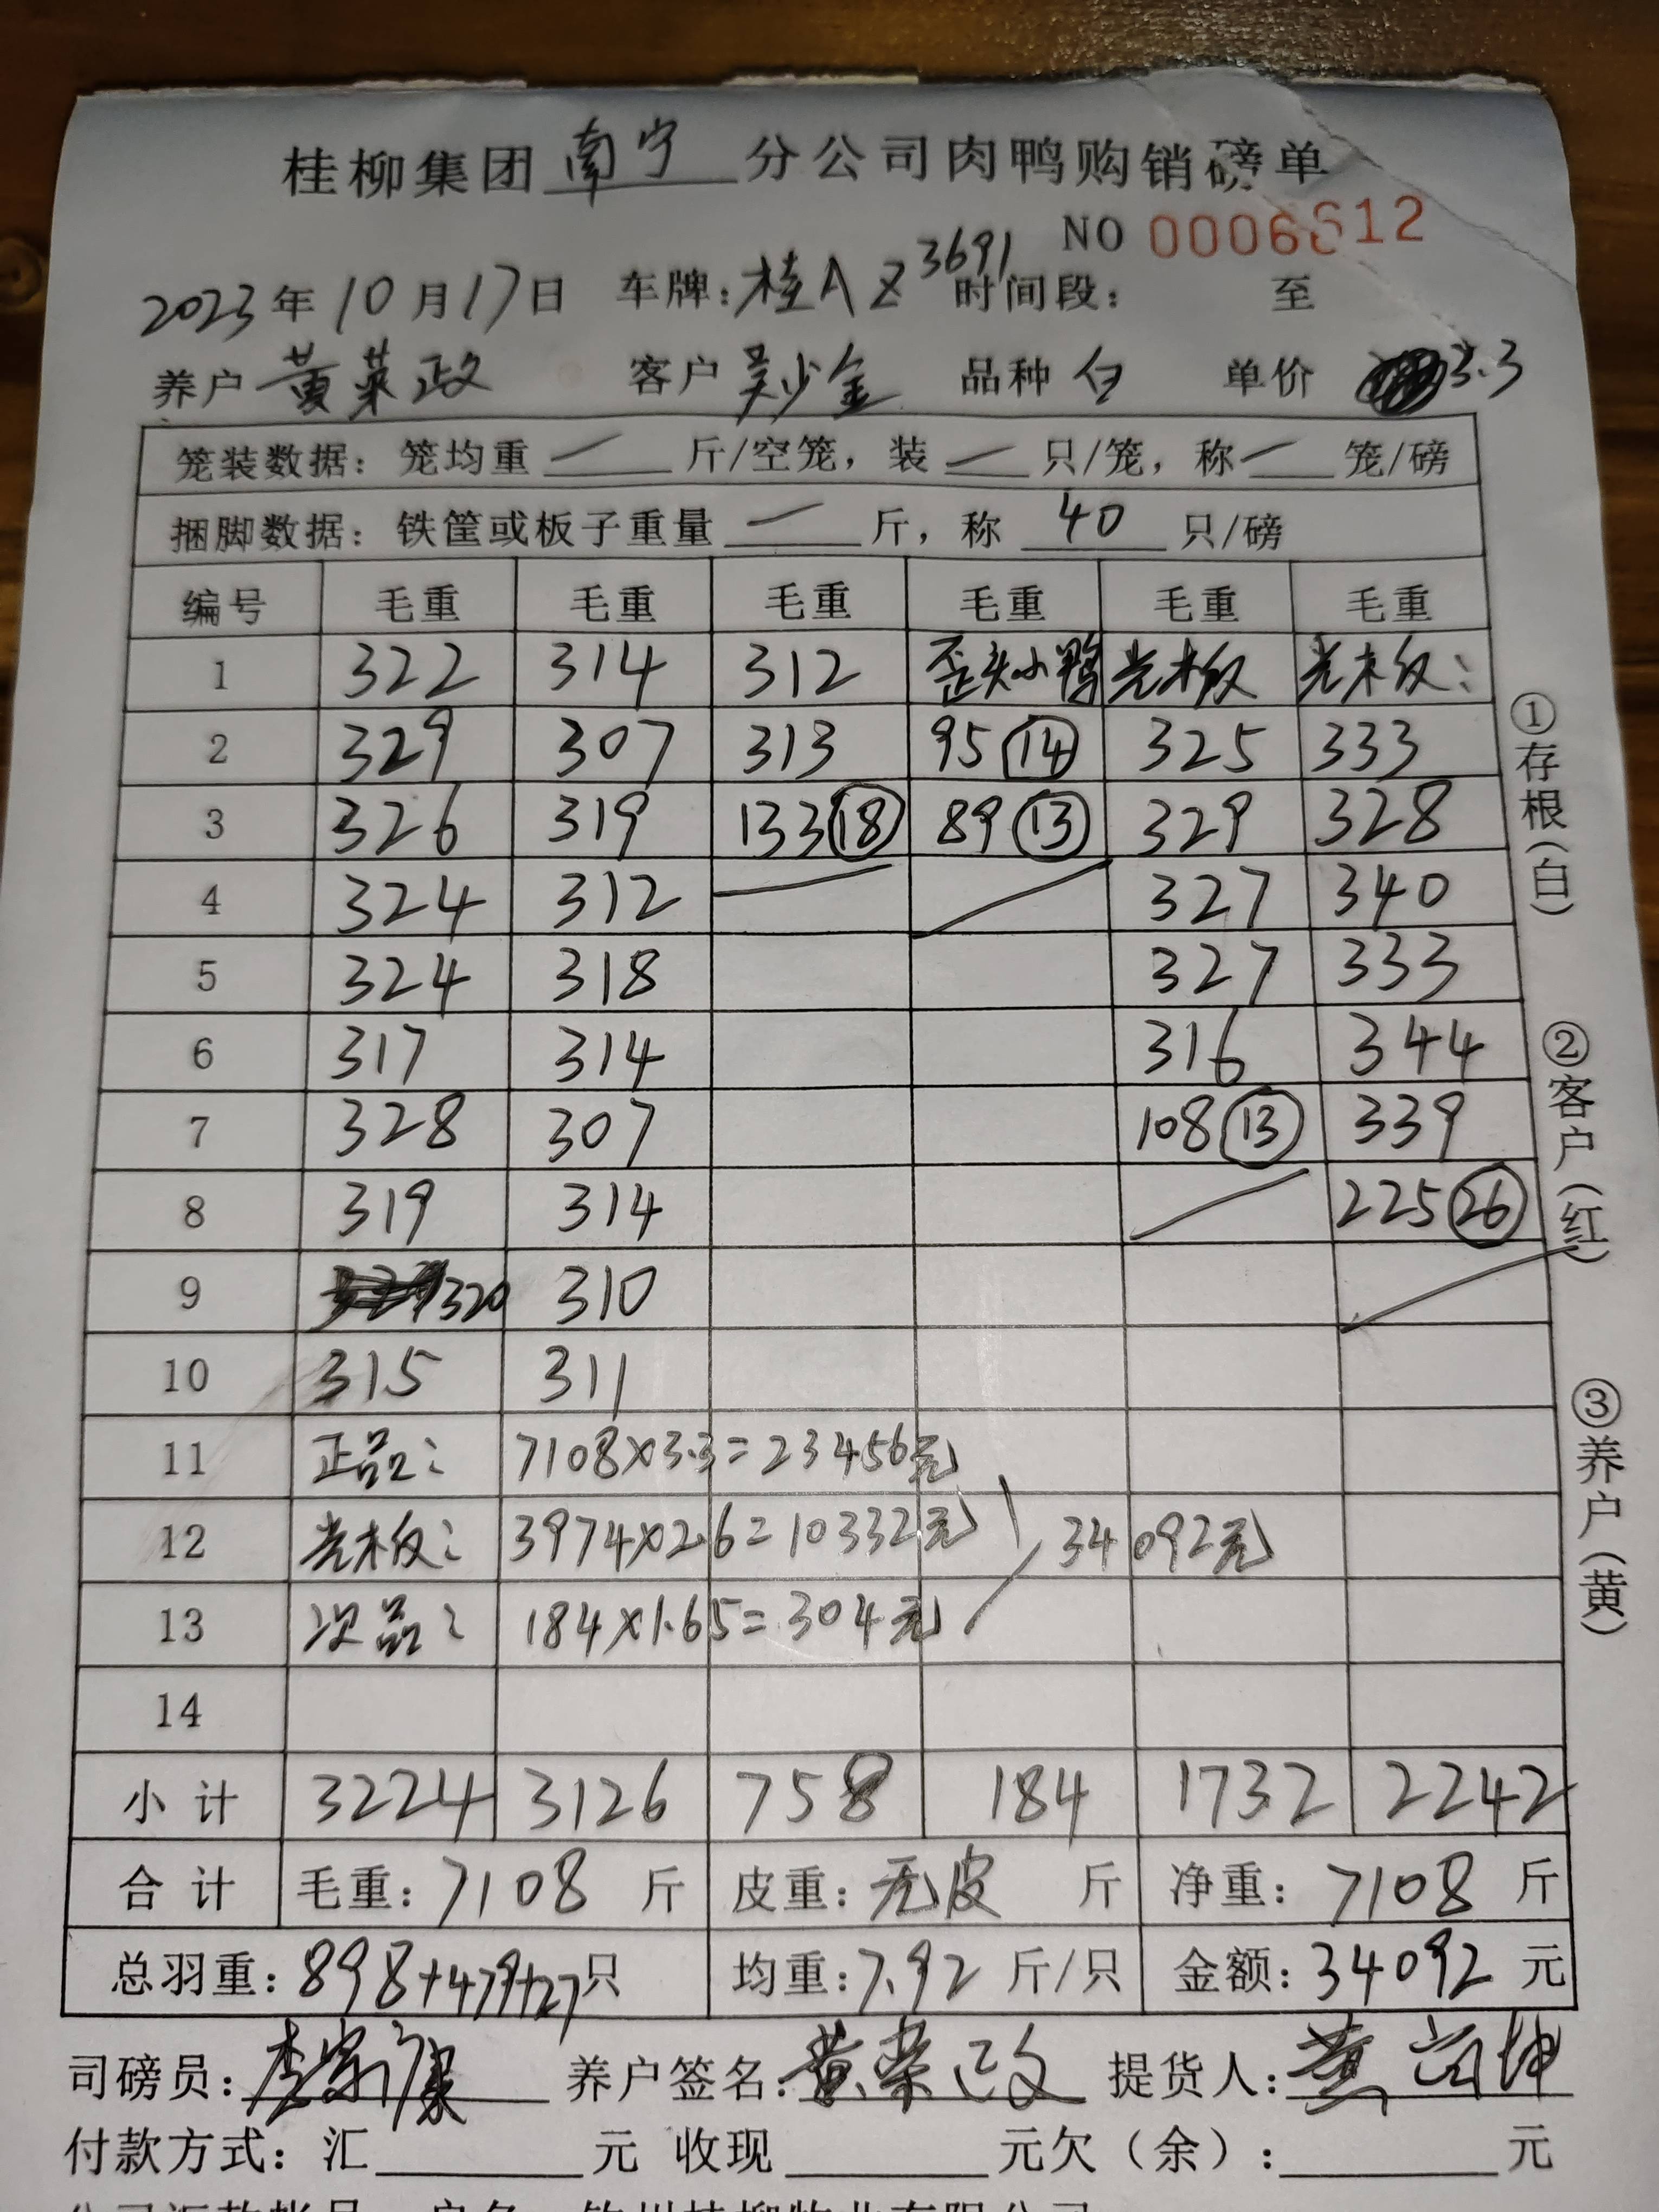 桂柳集团南宁分公司肉鸭购销磅单
NO 0006612
2023年10月17日 车牌:桂AZ3691 时间段: 至
养户 黄荣政 客户 吴少金 品种 白 单价 3.3
笼装数据: 笼均重 — 斤/空笼, 装 — 只/笼, 称 — 笼/磅
捆脚数据: 铁筐或板子重量 — 斤, 称 40 只/磅
编号 毛重 毛重 毛重 毛重 毛重 毛重
1 322 314 312 歪头小鸭 光木板 光木板:
2 329 307 313 95⑭ 325 333
3 326 319 133⑱ 89⑬ 329 328
4 324 312 327 340
5 324 318 327 333
6 317 314 316 344
7 328 307 108⑬ 339
8 319 314 225㉖
9 320 310
10 315 311
11 正品: 7108×3.3=23456元
12 光木板: 3974×2.6=10332元 34092元
13 次品: 184×1.65=304元
14
小计 3224 3126 758 184 1732 2242
合计 毛重: 7108 斤 皮重: 无皮 斤 净重: 7108 斤
总羽重: 898+479+27只 均重: 7.92 斤/只 金额: 34092 元
司磅员: 李 康 养户签名: 黄荣政 提货人: 黄 坤
付款方式: 汇 元 收现 元欠(余): 元
①存根(白)
②客户(红)
③养户(黄)